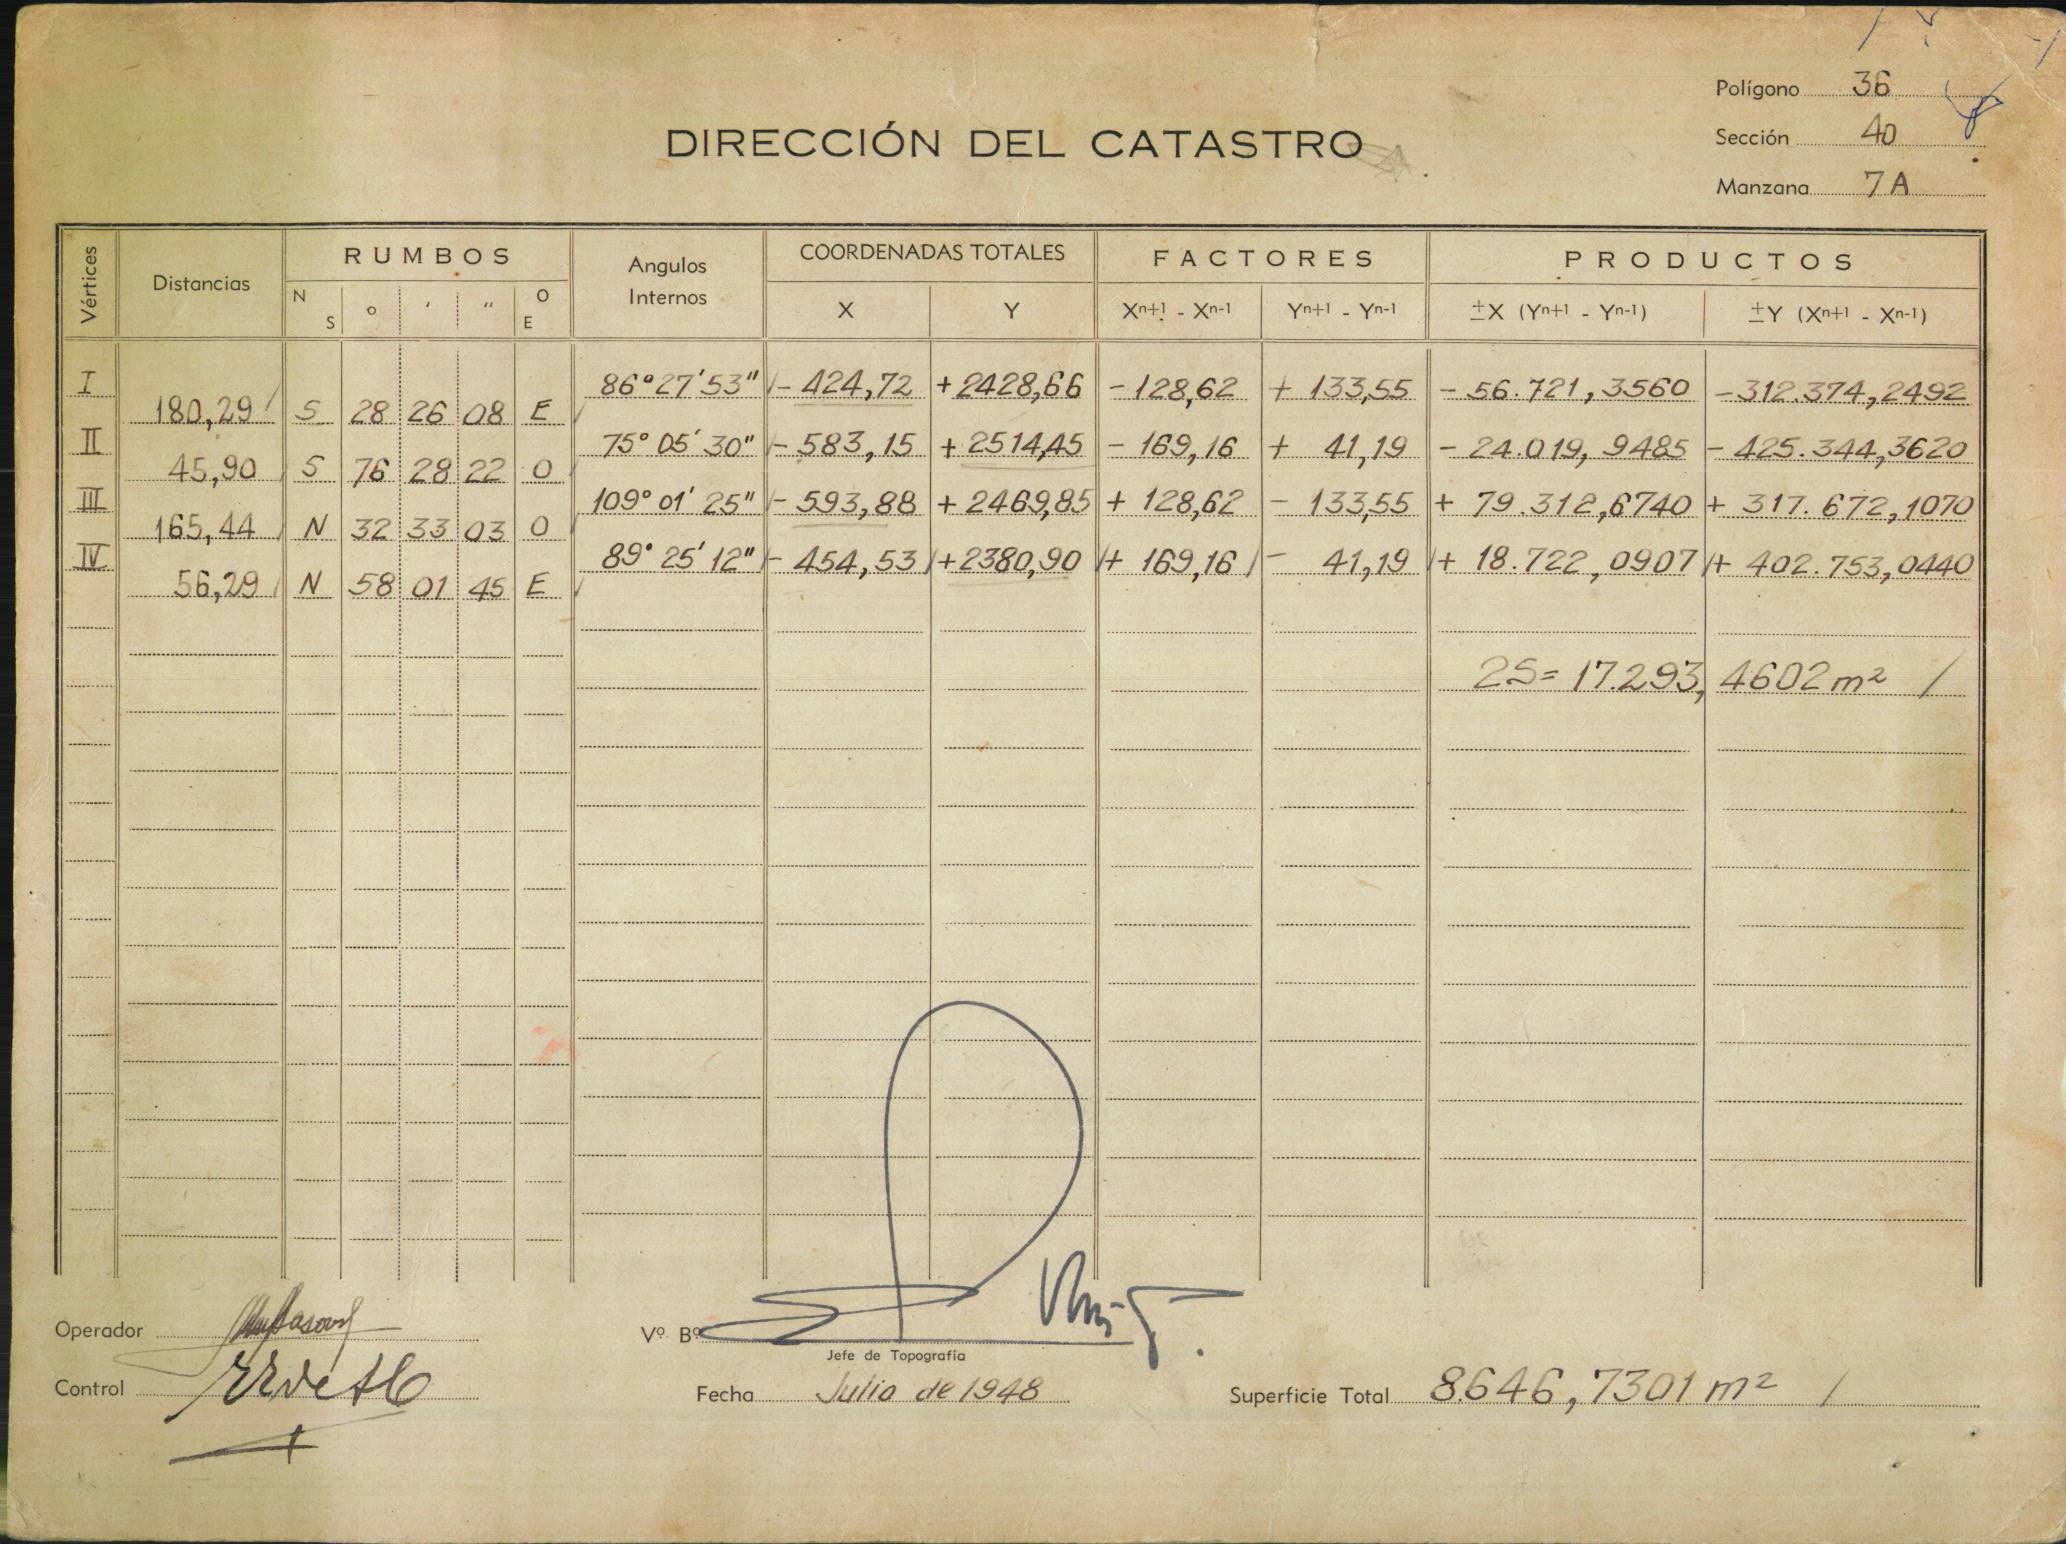 Polígono 36
DIRECCIÓN DEL CATASTRO
Sección 40
Manzana 7 A
Vértices Distancias RUMBOS Angulos Internos COORDENADAS TOTALES FACTORES PRODUCTOS
N S o ' " O E X Y Xn+1 - Xn-1 Yn+1 - Yn-1 ±X (Yn+1 - Yn-1) ±Y (Xn+1 - Xn-1)
I 86° 27' 53" - 424,72 + 2428,66 - 128,62 + 133,55 - 56.721,3560 - 312.374,2492
180,29 S 28 26 08 E
II 75° 05' 30" - 583,15 + 2514,45 - 169,16 + 41,19 - 24.019,9485 - 425.344,3620
45,90 S 76 28 22 O
III 109° 01' 25" - 593,88 + 2469,85 + 128,62 - 133,55 + 79.312,6740 + 317.672,1070
165,44 N 32 33 03 O
IV 89° 25' 12" - 454,53 + 2380,90 + 169,16 - 41,19 + 18.722,0907 + 402.753,0440
56,29 N 58 01 45 E
2S = 17.293,4602 m²
Operador
Vº Bº
Jefe de Topografía
Control
Fecha Julio de 1948
Superficie Total 8.646,7301 m²